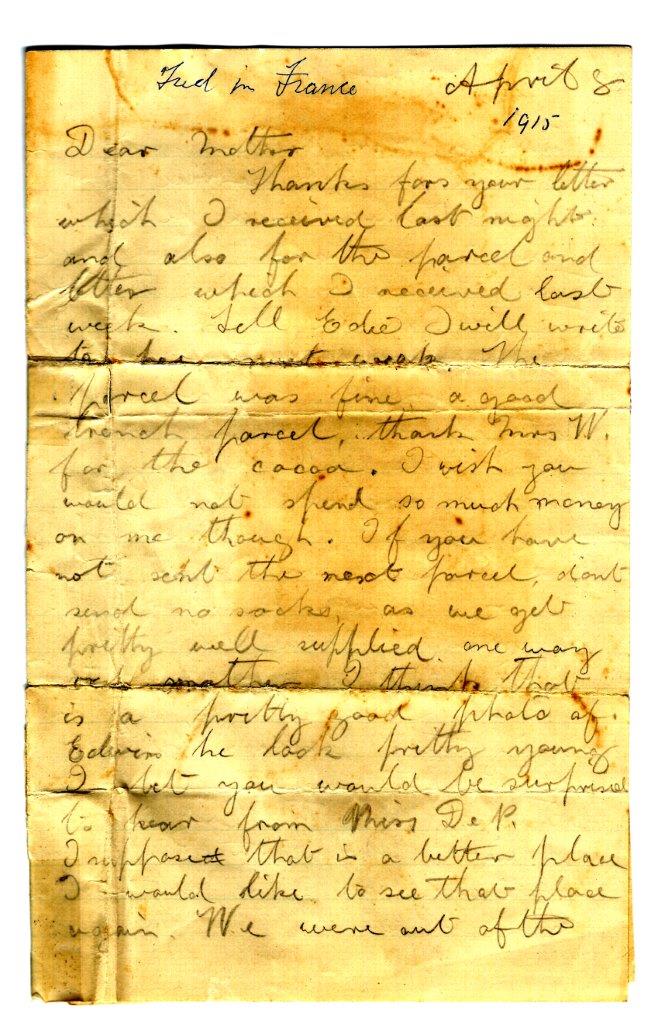 Fred in France April 8
1915
Dear Mother
Thanks fors your letter
which I received last night.
and also for the parcel and
letter which I received last
week. Tell Edie I will write
to her next week. The
parcel was fine, a good
trench parcel, thank Mrs W.
for the cocoa. I wish you
would not spend so much money
on me though. If you have
not sent the next parcel, dont
send no socks, as we get
pretty well supplied one way
mother I think that
is a pretty good photo of
Edwin he look pretty young
I bet you would be surprised
to hear from Miss De P.
I suppose that is a better place
I would like to see that place
again. We were out of the